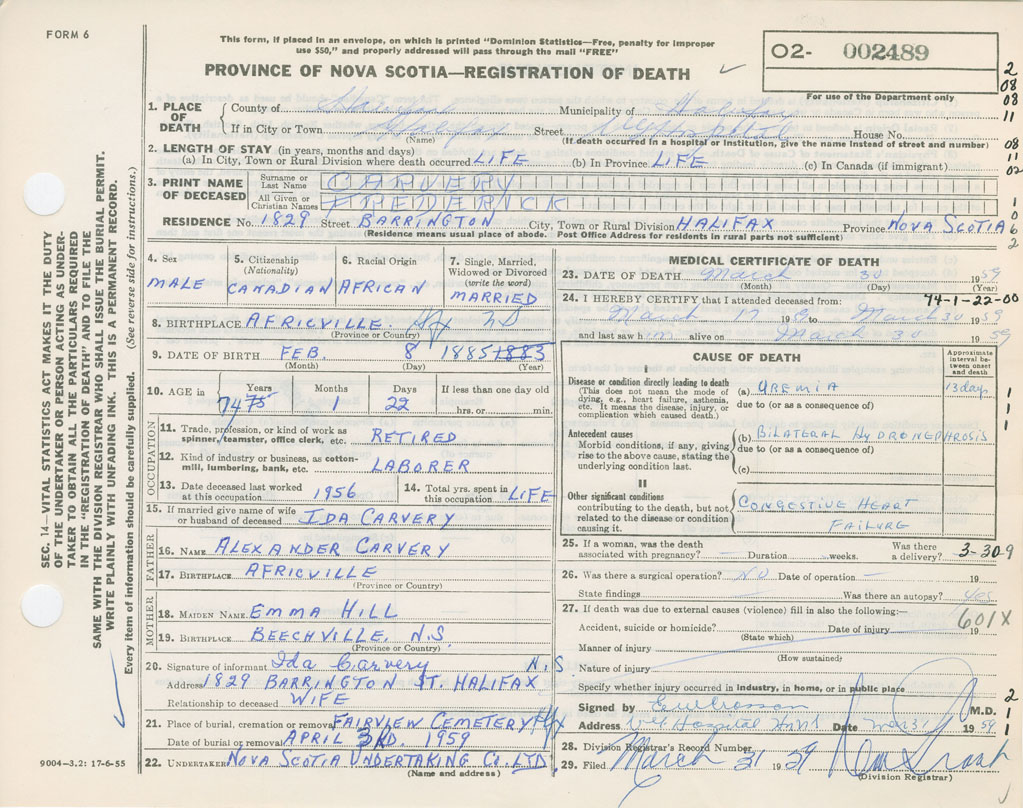 FORM 6
This form, if placed in an envelope, on which is printed "Dominion Statistics—Free, penalty for improper
use $50," and properly addressed will pass through the mail "FREE"
PROVINCE OF NOVA SCOTIA—REGISTRATION OF DEATH
02- 002489
For use of the Department only
2
08
08
11
08
11
02
1
0
6
2
SEC. 14—VITAL STATISTICS ACT MAKES IT THE DUTY
OF THE UNDERTAKER OR PERSON ACTING AS UNDER-
TAKER TO OBTAIN ALL THE PARTICULARS REQUIRED
IN THE "REGISTRATION OF DEATH" AND TO FILE THE
SAME WITH THE DIVISION REGISTRAR WHO SHALL ISSUE THE BURIAL PERMIT.
WRITE PLAINLY WITH UNFADING INK. THIS IS A PERMANENT RECORD.
Every item of information should be carefully supplied. (See reverse side for instructions.)
1. PLACE OF DEATH
County of Halifax Municipality of Halifax
If in City or Town Halifax Street House No.
(Name) (If death occurred in a hospital or Institution, give the name instead of street and number)
2. LENGTH OF STAY (in years, months and days)
(a) In City, Town or Rural Division where death occurred LIFE (b) In Province LIFE (c) In Canada (if immigrant)
3. PRINT NAME OF DECEASED
Surname or Last Name CARVERY
All Given or Christian Names FREDERICK
RESIDENCE No. 1829 Street BARRINGTON City, Town or Rural Division HALIFAX Province NOVA SCOTIA
(Residence means usual place of abode. Post Office Address for residents in rural parts not sufficient)
4. Sex
MALE
5. Citizenship (Nationality)
CANADIAN
6. Racial Origin
AFRICAN
7. Single, Married, Widowed or Divorced (write the word)
MARRIED
8. BIRTHPLACE AFRICVILLE. Hfx NS
(Province or Country)
9. DATE OF BIRTH FEB. 8 1885 1883
(Month) (Day) (Year)
10. AGE in
Years Months Days If less than one day old
74 75 1 22 hrs. or min.
OCCUPATION
11. Trade, profession, or kind of work as
spinner, teamster, office clerk, etc. RETIRED
12. Kind of industry or business, as cotton-
mill, lumbering, bank, etc. LABORER
13. Date deceased last worked
at this occupation 1956
14. Total yrs. spent in
this occupation LIFE
15. If married give name of wife
or husband of deceased IDA CARVERY
FATHER
16. NAME ALEXANDER CARVERY
17. BIRTHPLACE AFRICVILLE
(Province or Country)
MOTHER
18. MAIDEN NAME EMMA HILL
19. BIRTHPLACE BEECHVILLE, N.S
(Province or Country)
20. Signature of informant Ida Carvery N.S
Address 1829 BARRINGTON ST. HALIFAX
Relationship to deceased WIFE
21. Place of burial, cremation or removal FAIRVIEW CEMETERY Hfx
Date of burial or removal APRIL 3RD. 1959
22. UNDERTAKER NOVA SCOTIA UNDERTAKING CO. LTD.
(Name and address)
9004-3.2: 17-6-55
MEDICAL CERTIFICATE OF DEATH
23. DATE OF DEATH March 30 1959
(Month) (Day) (Year)
24. I HEREBY CERTIFY that I attended deceased from: 74-1-22-00
March 17 19 to March 30 1959
and last saw him alive on March 30 1959
CAUSE OF DEATH
Approximate interval between onset and death
I
Disease or condition directly leading to death
(This does not mean the mode of
dying, e.g., heart failure, asthenia,
etc. It means the disease, injury, or
complication which caused death.)
(a) UREMIA 13 days
due to (or as a consequence of)
Antecedent causes
Morbid conditions, if any, giving
rise to the above cause, stating the
underlying condition last.
(b) BILATERAL HYDRONEPHROSIS
due to (or as a consequence of)
(c)
II
Other significant conditions
contributing to the death, but not
related to the disease or condition
causing it.
CONGESTIVE HEART
FAILURE
1
1
1
25. If a woman, was the death
associated with pregnancy? Duration weeks. Was there
a delivery? 3-30-9
26. Was there a surgical operation? NO Date of operation — 19
State findings — Was there an autopsy? yes
27. If death was due to external causes (violence) fill in also the following:—
601X
Accident, suicide or homicide? Date of injury 19
(State which)
Manner of injury
(How sustained)
Nature of injury
Specify whether injury occurred in industry, in home, or in public place
Signed by M.D.
Address V.G Hospital Date Mar 31 1959
2
1
1
28. Division Registrar's Record Number
29. Filed March 31 1959
(Division Registrar)